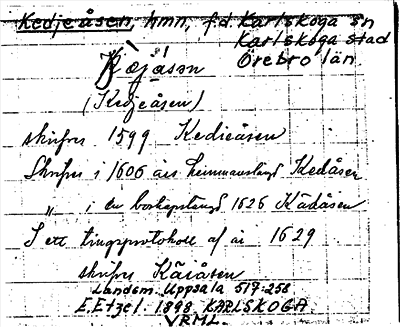 Kedjeåsen, hmn, f.d. Karlskoga sn
Karlskoga stad
Örebro län
(Kedjeåsen)
skrifves 1599 Kedieåsen
Skrifves i 1606 års hemmanslängd Kedåsen
" i en boskapslängd 1626 Kädåsen
I ett tingsprotokoll af år 1629
skrifves
Landsm. Uppsala 517:258
E.Etzel. 1898 KARLSKOGA
VRML.